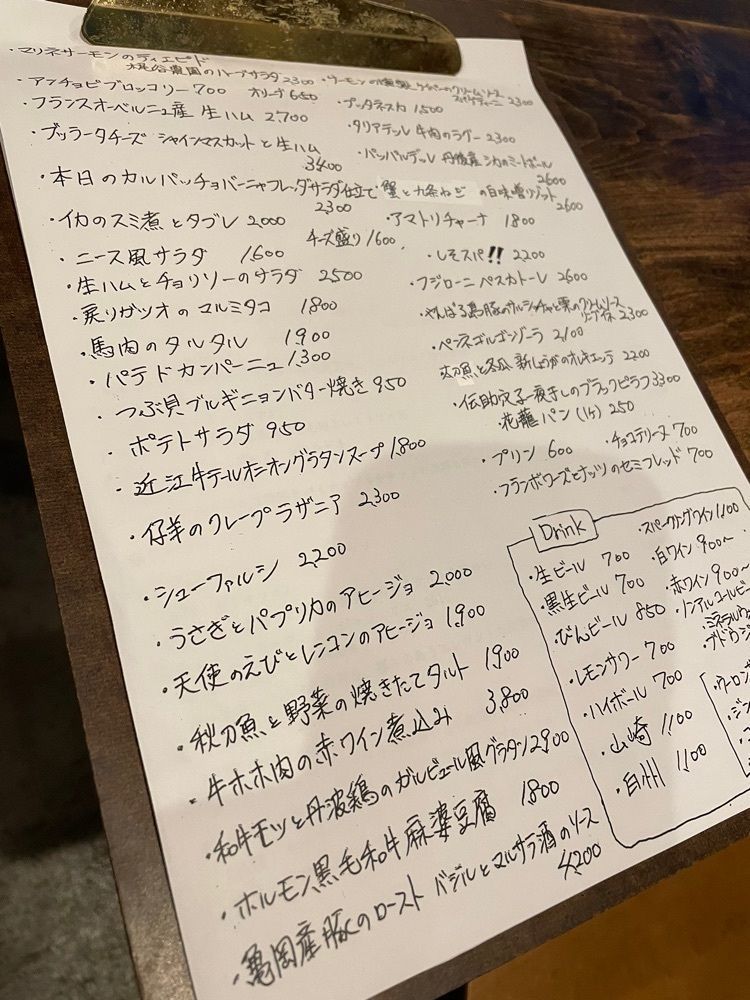 ・マリネサーモンのティエピド
大長谷農園のハーブサラダ 2300
・アンチョビブロッコリー 700 オリーブ 650
・フランスオーベルニュ産 生ハム 2,700
・ブッラータチーズ シャインマスカットと生ハム
3400
・本日のカルパッチョバーニャフレッダサラダ仕立て
2300
・イカのスミ煮とタブレ 2,000
チーズ盛り 1600
・ニース風サラダ 1,600
・生ハムとチョリソーのサラダ 2500
・戻りガツオのマルミタコ 1800
・馬肉のタルタル 1900
・パテドカンパーニュ 1,300
・つぶ貝ブルギニョンバター焼き 950
・ポテトサラダ 950
・近江牛テールオニオングラタンスープ 1,800
・仔羊のクレープラザニア 2,300
・シューファルシ 2,200
・うさぎとパプリカのアヒージョ 2,000
・天使のえびとレンコンのアヒージョ 1,900
・秋刀魚と野菜の焼きたてタルト 1,900
・牛ホホ肉の赤ワイン煮込み 3,800
・和牛モツと丹波鶏のガルビュール風グラタン 2900
・ホルモン黒毛和牛麻婆豆腐 1,800
・亀岡産豚のロースト バジルとマルサラ酒のソース
4,200
・サーモンの燻製 ケイパーのクリームソース
スパゲティーニ 2300
・プッタネスカ 1,500
・タリアテッレ 牛肉のラグー 2300
・パッパルデッレ 丹後産シカのミートボール
2600
蟹と九条ねぎの白味噌リゾット
2600
・アマトリチャーナ 1800
・しそスパ!! 2200
・フジローニ ペスカトーレ 2600
・やんばる島豚のサルシッチャと栗のクリームソース
2300
・ペンネゴルゴンゾーラ 2,100
太刀魚と冬瓜 新しょうがのオレキエッテ 2200
・伝助穴子一夜干しのブラックピラフ 3300
・花籠パン (1ケ) 250
・プリン 600
・チョコテリーヌ 700
・フランボワーズとナッツのセミフレッド 700
Drink
・スパークリングワイン 1,100
・生ビール 700
・白ワイン 900〜
・黒生ビール 700
・赤ワイン 900〜
・びんビール 850
・ノンアルコールビー
・ミネラルウォ
・ブドウジ
・レモンサワー 700
・ハイボール 700
・ウーロン
・ジン
・山崎 1,100
・白州 1,100